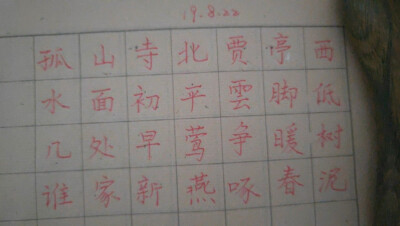 19.8.22
孤山寺北贾亭西
水面初平雲脚低
几处早莺争暖树
谁家新燕啄春泥